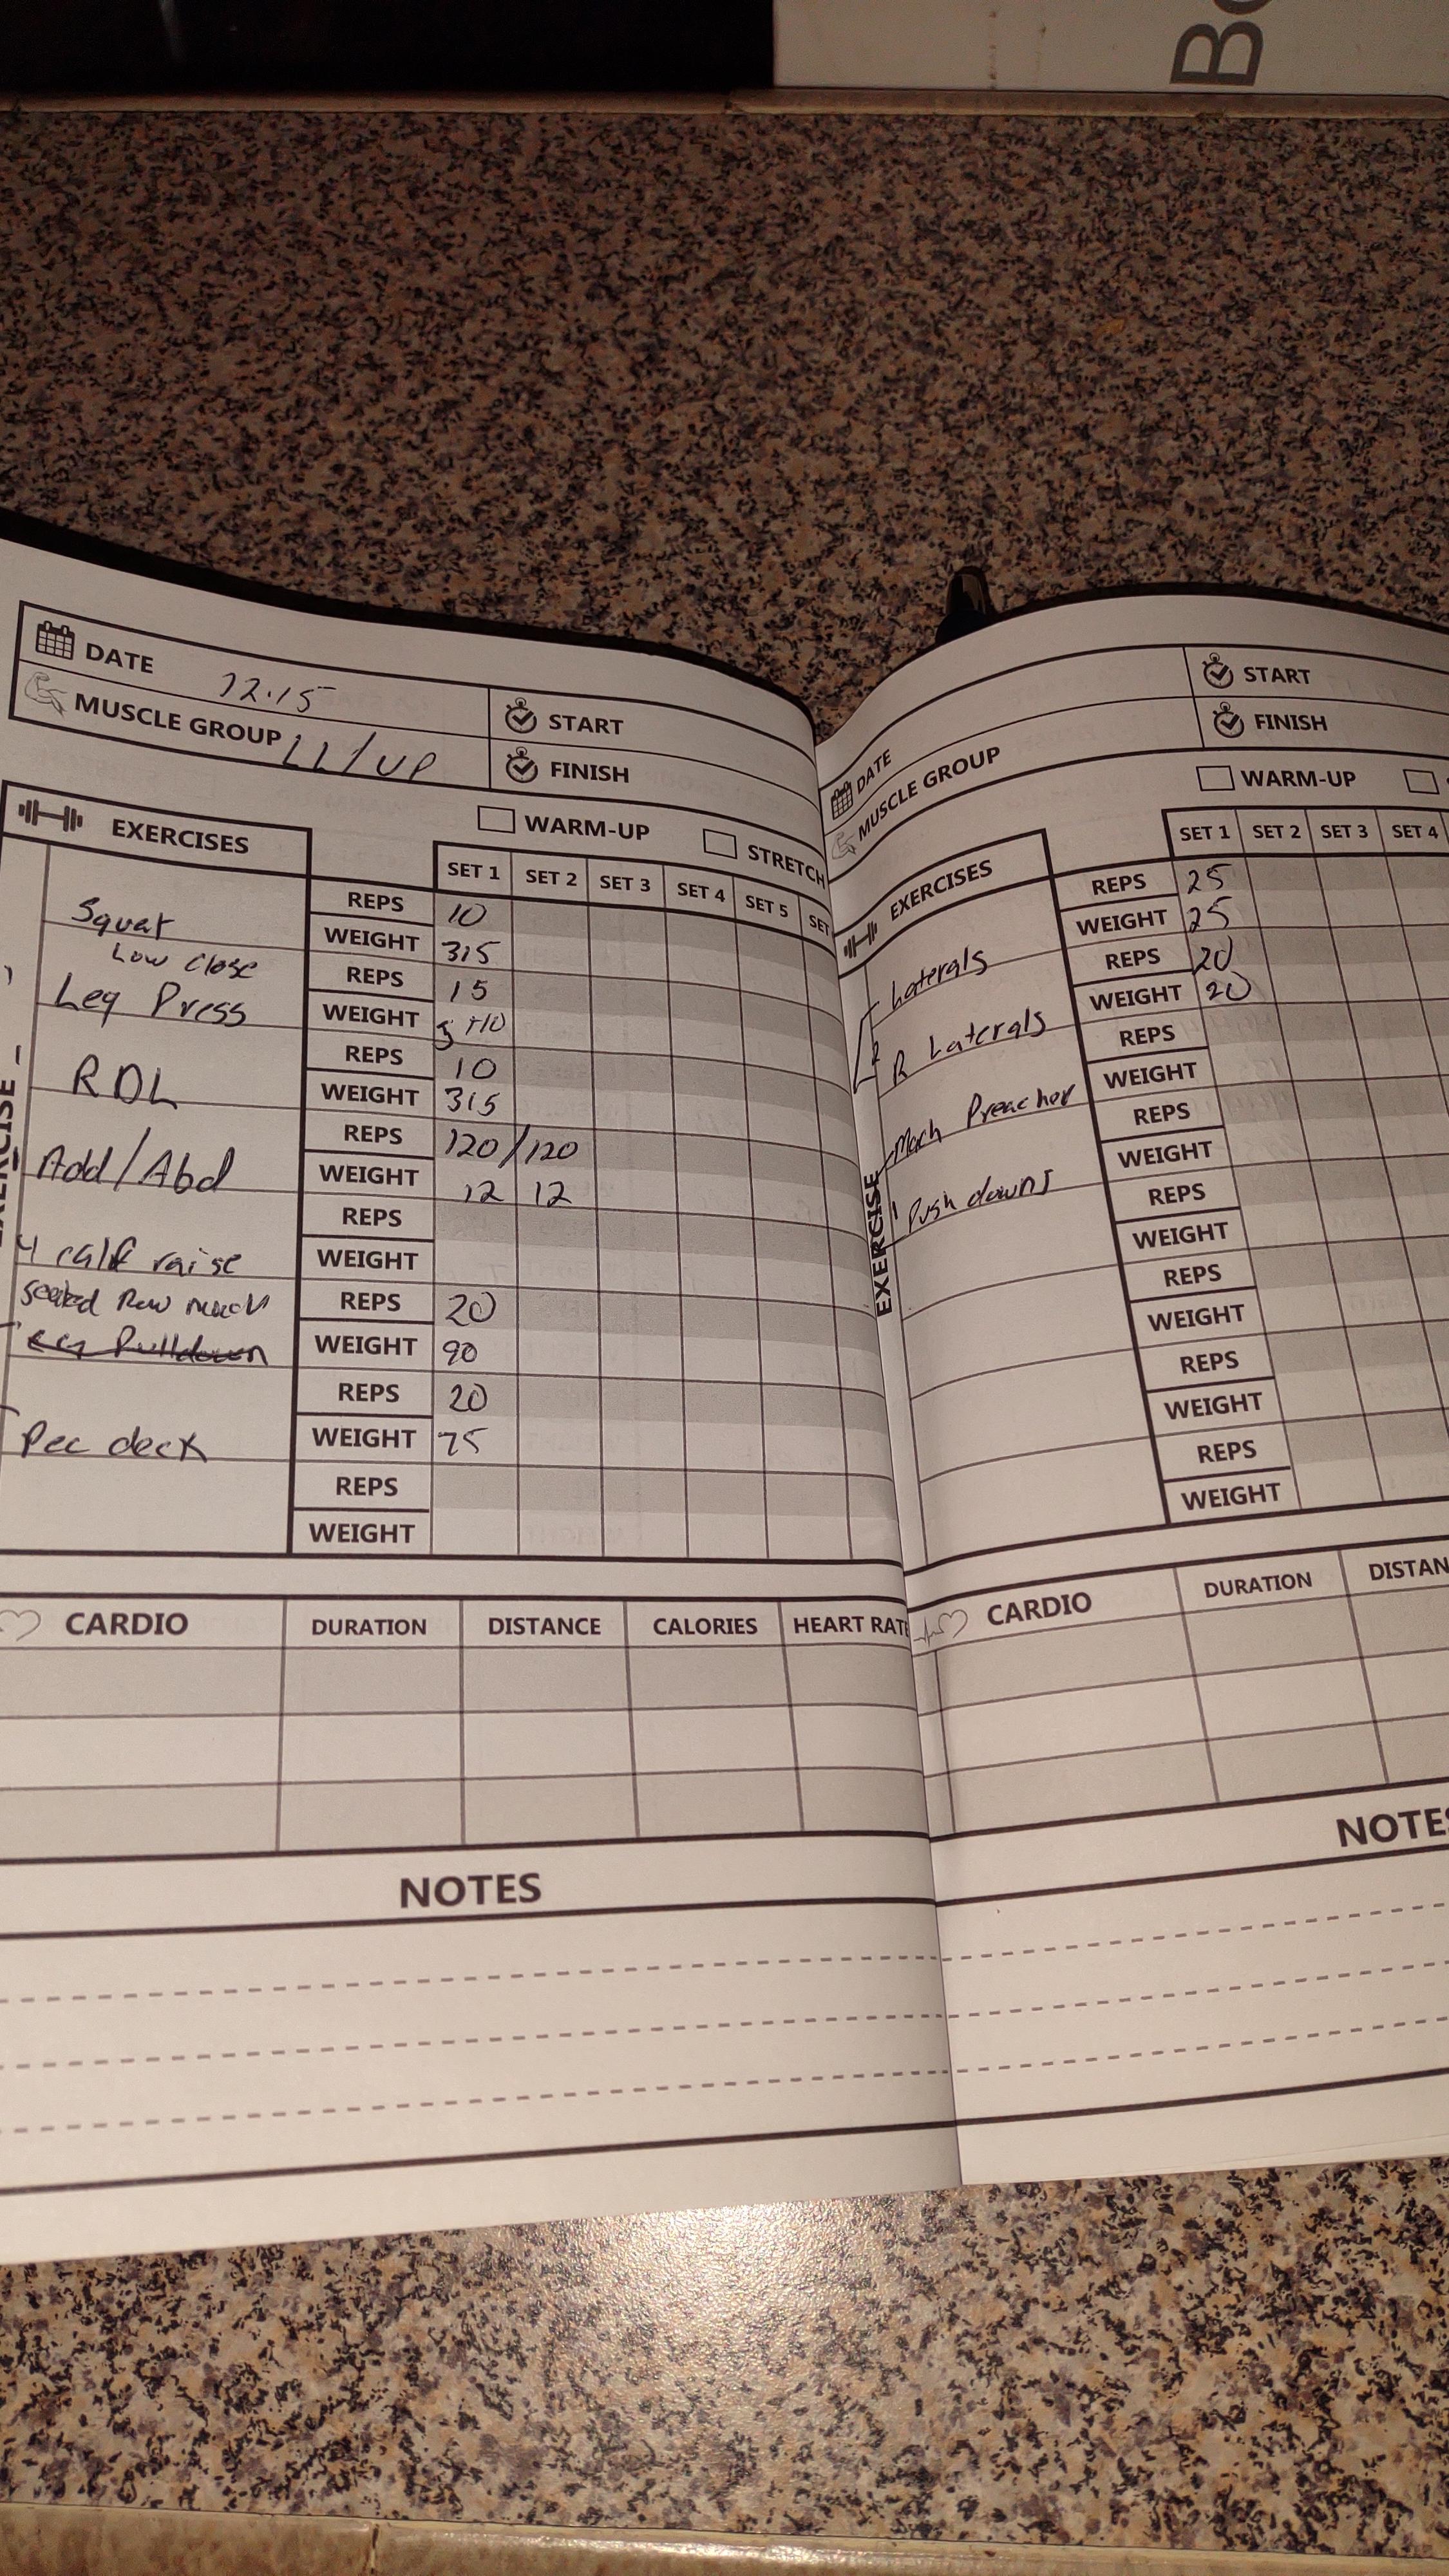 Bo
DATE 12.15
MUSCLE GROUP LL/UP
START
FINISH
WARM-UP
STRETCH
EXERCISES
SET 1 SET 2 SET 3 SET 4 SET 5 SET
Squat
REPS 10
WEIGHT 315
Low close
Leg Press
REPS 15
WEIGHT 5 +10
RDL
REPS 10
WEIGHT 315
Add/Abd
REPS 120/120
WEIGHT 12 12
4 calf raise
REPS
WEIGHT
seated Row mach
Pulldown
REPS 20
WEIGHT 90
Pec deck
REPS 20
WEIGHT 75
REPS
WEIGHT
EXERCISE
CARDIO DURATION DISTANCE CALORIES HEART RATE
NOTES
DATE
MUSCLE GROUP
START
FINISH
WARM-UP
EXERCISES
SET 1 SET 2 SET 3 SET 4
Laterals
REPS 25
WEIGHT 25
R Laterals
REPS 20
WEIGHT 20
Mach Preacher
REPS
WEIGHT
Push downs
REPS
WEIGHT
REPS
WEIGHT
REPS
WEIGHT
REPS
WEIGHT
REPS
WEIGHT
EXERCISE
CARDIO DURATION DISTAN
NOTES